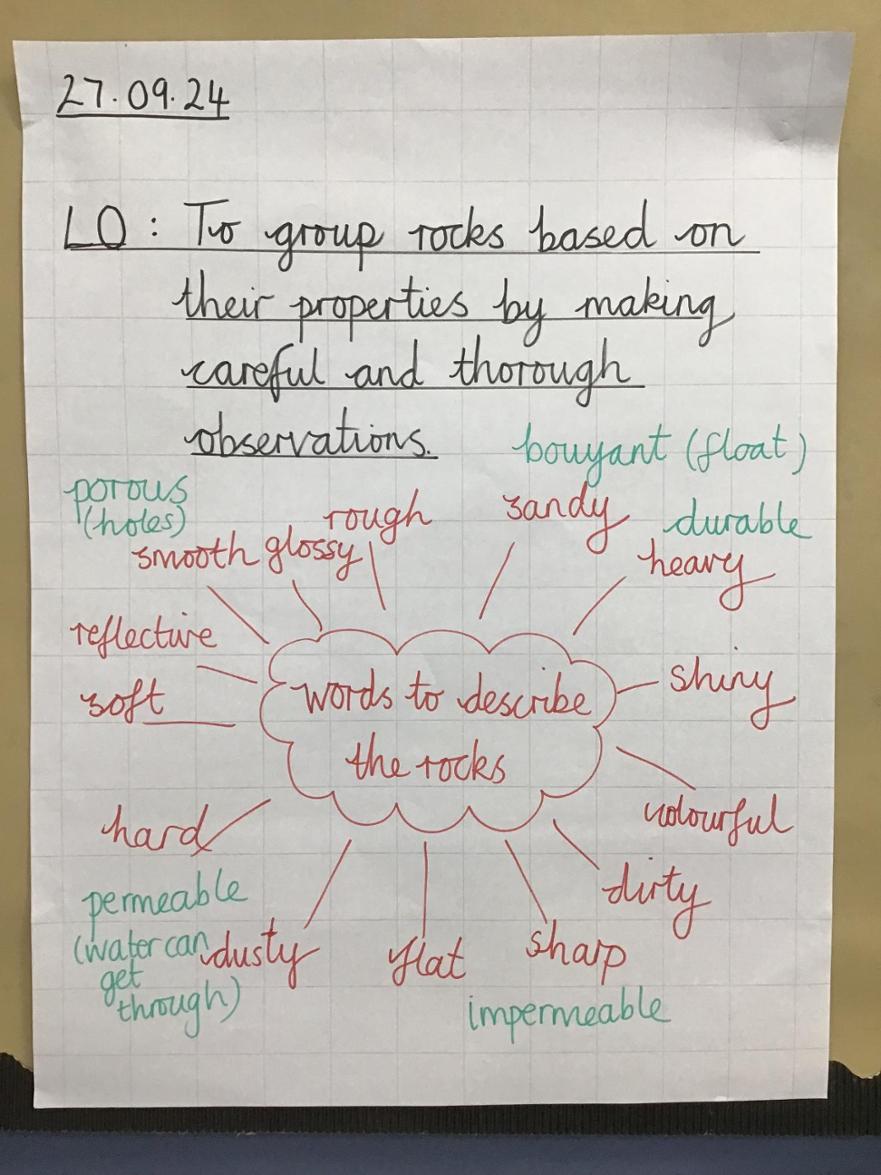 27.09.24
LO: To group rocks based on
their properties by making
careful and thorough
observations.
bouyant (float)
porous
(holes)
rough
sandy
durable
smooth
glossy
heavy
reflective
shiny
soft
words to describe
the rocks
hard
colourful
dirty
permeable
(water can
get
through)
dusty
flat
sharp
impermeable